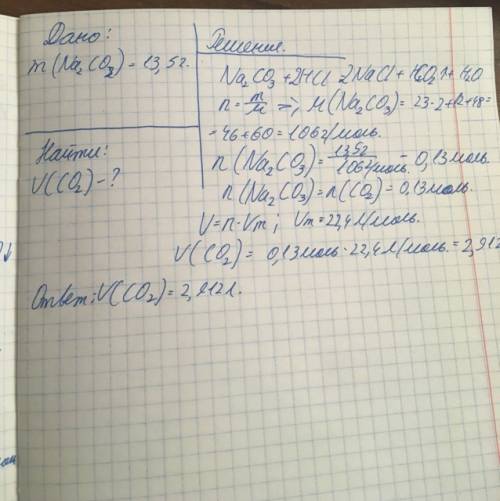 Дано:
m(Na₂CO₃) = 13,5г.
Найти:
V(CO₂) - ?
Решение.
Na₂CO₃ + 2HCl 2NaCl + CO₂↑ + H₂O
n = m/M ⇒; M(Na₂CO₃) = 23·2+12+48=
= 46+60 = 106г/моль.
n(Na₂CO₃) = 13,5г/106г/моль = 0,13моль
n(Na₂CO₃) = n(CO₂) = 0,13моль.
V = n·Vm; Vm = 22,4л/моль.
V(CO₂) = 0,13моль·22,4л/моль. = 2,912
Ответ: V(CO₂) = 2,912л.